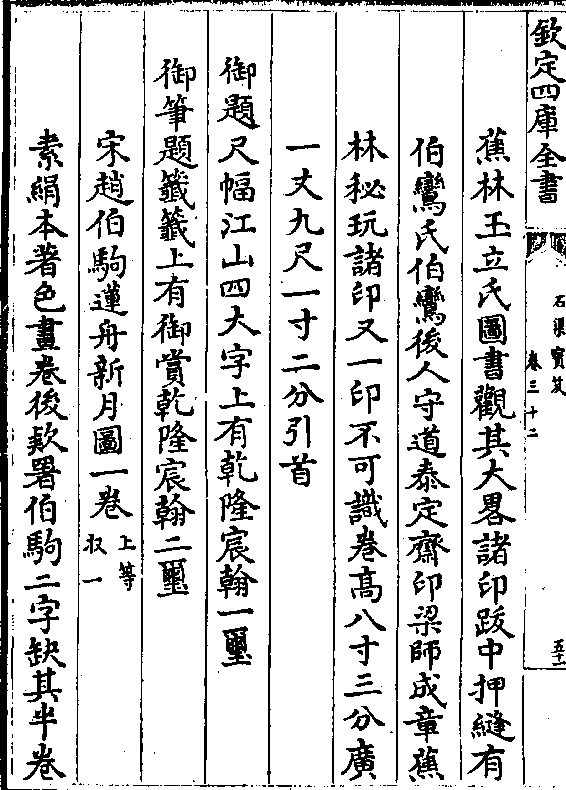 欽定四庫全書
石渠寶笈
卷三十二
五十一
蕉林玉立氏圖書觀其大畧諸印跋中押縫有
伯鸞氏伯鸞後人守道泰定齋印梁師成章蕉
林秘玩諸印又一印不可識卷高八寸三分廣
一丈九尺一寸二分引首
御題尺幅江山四大字上有乾隆宸翰一璽
御筆題籤籤上有御賞乾隆宸翰二璽
宋趙伯駒蓮舟新月圖一卷
上等
收一
素絹本著色畫卷後款署伯駒二字缺其半卷